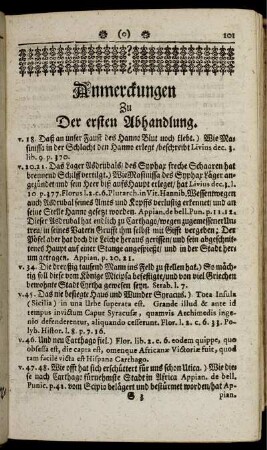 (0) 101
Anmerckungen
Zu
Der ersten Abhandlung.
v. 18. Daß an unser Faust des Hanno Blut noch klebt.) Wie Mas-
sinissa in der Schlacht den Hanno erlegt / beschreibt Livius dec. 3.
lib. 9. p. 370.
v. 20.21. Das Lager Asdrubals; des Syphax freche Schaaren hat
brennend Schilf vertilgt.) Wie Massinissa des Syphax Läger an-
gezündet und sein Heer biß aufs Haupt erleget / hat Livius dec. 3. l.
10. p. 377. Florus l. 2. c. 6. Plutarch. in Vit. Hannib. Wessentwegen
auch Asdrubal seines Amts und Kopffs verlustig erkennet und an
seine Stelle Hanno gesetzt worden. Appian. de bell. Pun. p. 11. 14.
Dieser Asdrubal hat endlich zu Carthago / wegen zugemessner Un-
treu / in seines Vatern Grufft ihm selbst mit Gifft vergeben; Der
Pöfel aber hat doch die Leiche heraus gerissen / und sein abgeschnit-
tenes Haupt auf einer Stange aufgespießt / und in der Stadt herum
getragen. Appian. p. 20. 21.
v. 34. Die dreyssig tausend Mann ins Feld zu stellen hat.) So mäch-
tig soll diese vom Könige Micipsa befestigte / und von viel Griechen
bewohnte Stadt Cyrtha gewesen seyn. Strab. l. 7.
v. 45. Das mit besiegte Haus und Wunder Syracus.) Tota Insula
(Sicilia) in una Urbe superata est. Grande illud & ante id
tempus invictum Caput Syracusæ, quamvis Archimedis inge-
nio defenderentur, aliquando cesserunt. Flor. l. 2. c. 6. 33. Po-
lyb. Histor. l. 8. p. 7. 16.
v. 46. Und neu Carthago fiel.) Flor. lib. 2. c. 6. eodem quippe, quo
obsessa est, die capta est, omenque Africanæ Victoriæ fuit, quod
tam facile victa est Hispana Carthago.
v. 47. 48. Wie offt hat sich erschüttert für uns schon Utica.) Wie die-
se nach Carthago fürnehmste Stadt in Africa Appian. de bell.
Punic. p. 41. vom Scipio belägert und bestürmet worden / hat Ap-
G 3 pian.